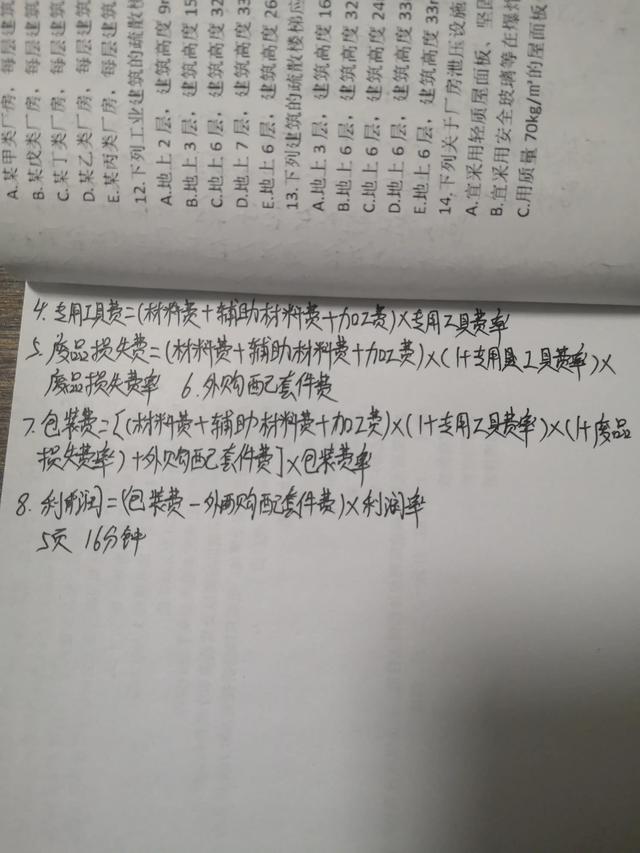 A.某甲类厂房，每层建筑
B.某戊类厂房，每层建筑
C.某丁类厂房，每层建筑
D.某乙类厂房，每层建筑
E.某丙类厂房，每层建筑
12.下列工业建筑的疏散楼梯
A.地上2层，建筑高度9m
B.地上3层，建筑高度15
C.地上6层，建筑高度32
D.地上7层，建筑高度33
E.地上6层，建筑高度26
13.下列建筑的疏散楼梯应
A.地上3层，建筑高度16
B.地上6层，建筑高度32
C.地上6层，建筑高度24
D.地上6层，建筑高度33
E.地上6层，建筑高度33m
14.下列关于厂房泄压设施
A.宜采用轻质屋面板、
B.宜采用安全玻璃等在爆炸
C.用质量70kg/m²的屋面板
4.专用工具费=(材料费+辅助材料费+加工费)×专用工具费率
5.废品损失费=(材料费+辅助材料费+加工费)×(1+专用工具费率)×
废品损失费率 6.外购配套件费
7.包装费=[(材料费+辅助材料费+加工费)×(1+专用工具费率)×(1+废品
损失费率)+外购配套件费]×包装费率
8.利润=(包装费-外购配套件费)×利润率
5页 16分钟